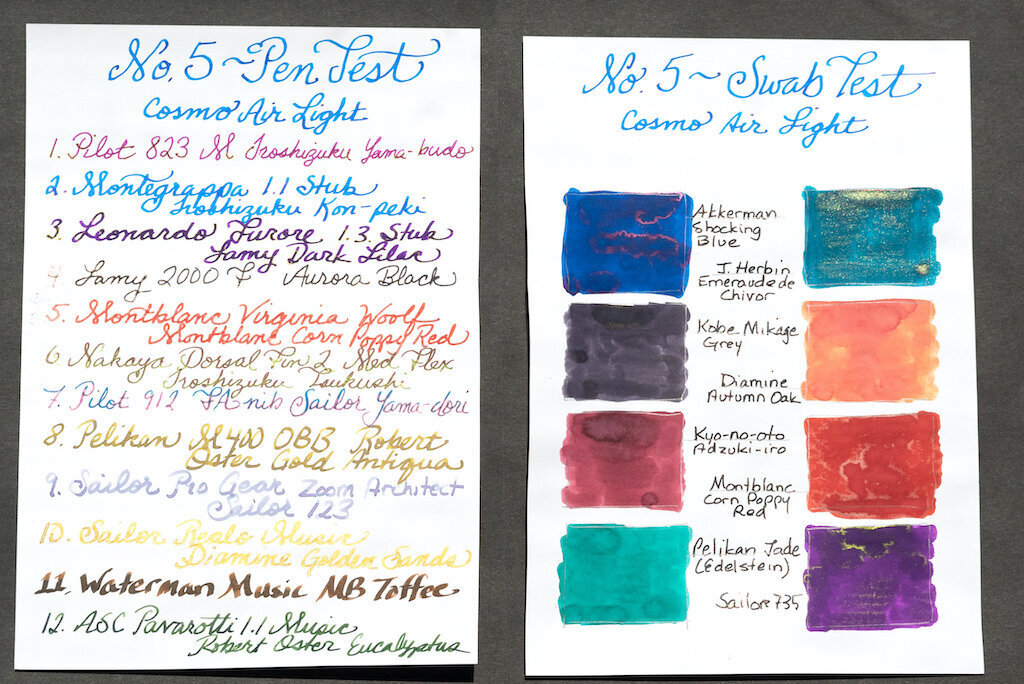 No. 5 ~ Pen Test
Cosmo Air Light
1. Pilot 823 M Iroshizuku Yama-budo
2. Montegrappa 1.1 Stub
Iroshizuku Kon-peki
3. Leonardo Furore 1.3 Stub
Lamy Dark Lilac
4 Lamy 2000 F Aurora Black
5. Montblanc Virginia Woolf
Montblanc Corn Poppy Red
6 Nakaya Dorsal Fin 2 Med Flex
Iroshizuku Tsukushi
7. Pilot 912 FA nib Sailor Yama-dori
8. Pelikan M400 OBB Robert
Oster Gold Antiqua
9. Sailor Pro Gear Zoom Architect
Sailor 123
10. Sailor Realo Music
Diamine Golden Sands
11. Waterman Music MB Toffee
12. ASC Pavarotti 1.1 Music
Robert Oster Eucalyptus
No. 5 ~ Swab Test
Cosmo Air Light
Akkerman
Shocking
Blue
J. Herbin
Emeraude de
Chivor
Kobe Mikage
Grey
Diamine
Autumn Oak
Kyo-no-oto
Adzuki-iro
Montblanc
Corn Poppy
Red
Pelikan Jade
(Edelstein)
Sailor 735